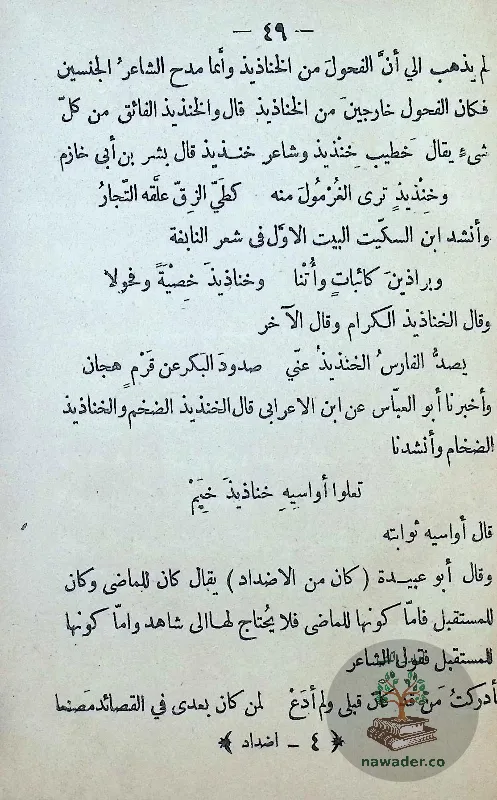 — ٤٩ —
لم يذهب الي أنَّ الفحولَ من الخناذيذ وأنما مدح الشاعرُ الجنسين
فكان الفحول خارجينَ من الخناذيذ قال والخنذيذ الفائق من كلّ
شىءٍ يقال خَطيب خِنْذيذ وشاعر خنـذيذ قال بشر بن أبي خازم
وخِنْذيذٍ ترى الغُرْمُولَ منه كطَيِّ الزِقّ علّقه التّجارُ
وأنشد ابن السكّيت البيت الاوَّل في شعر النابغة
وبراذينَ كابئاتٍ وأُتْنا وخناذيذَ خِصْيَةً وفحولا
وقال الخناذيذ الكرام وقال الآخر
يصدُّ الفارسُ الخنذيذُ عنّي صدودَ البَكر عن قَرْمٍ هجان
وأخبرنا أبو العبّاس عن ابن الاعرابى قال الخنذيذ الضخم والخناذيذ
الضخام وأنشدنا
تعلوا أواسِيهِ خناذيذَ خِيَمْ
قال أواسيه ثوابته
وقال أبو عبيدة ( كان من الاضداد ) يقال كان للماضى وكان
للمستقبل فامّا كونها للماضى فلا يُحتاج لها الى شاهد وامّا كونها
للمستقبل فقول الشاعر
أدركتُ مَن قد كان قبلى ولم أدَعْ لمن كان بعدى في القصائد مَصنعا
﴿ ٤ - اضداد ﴾
nawader.co